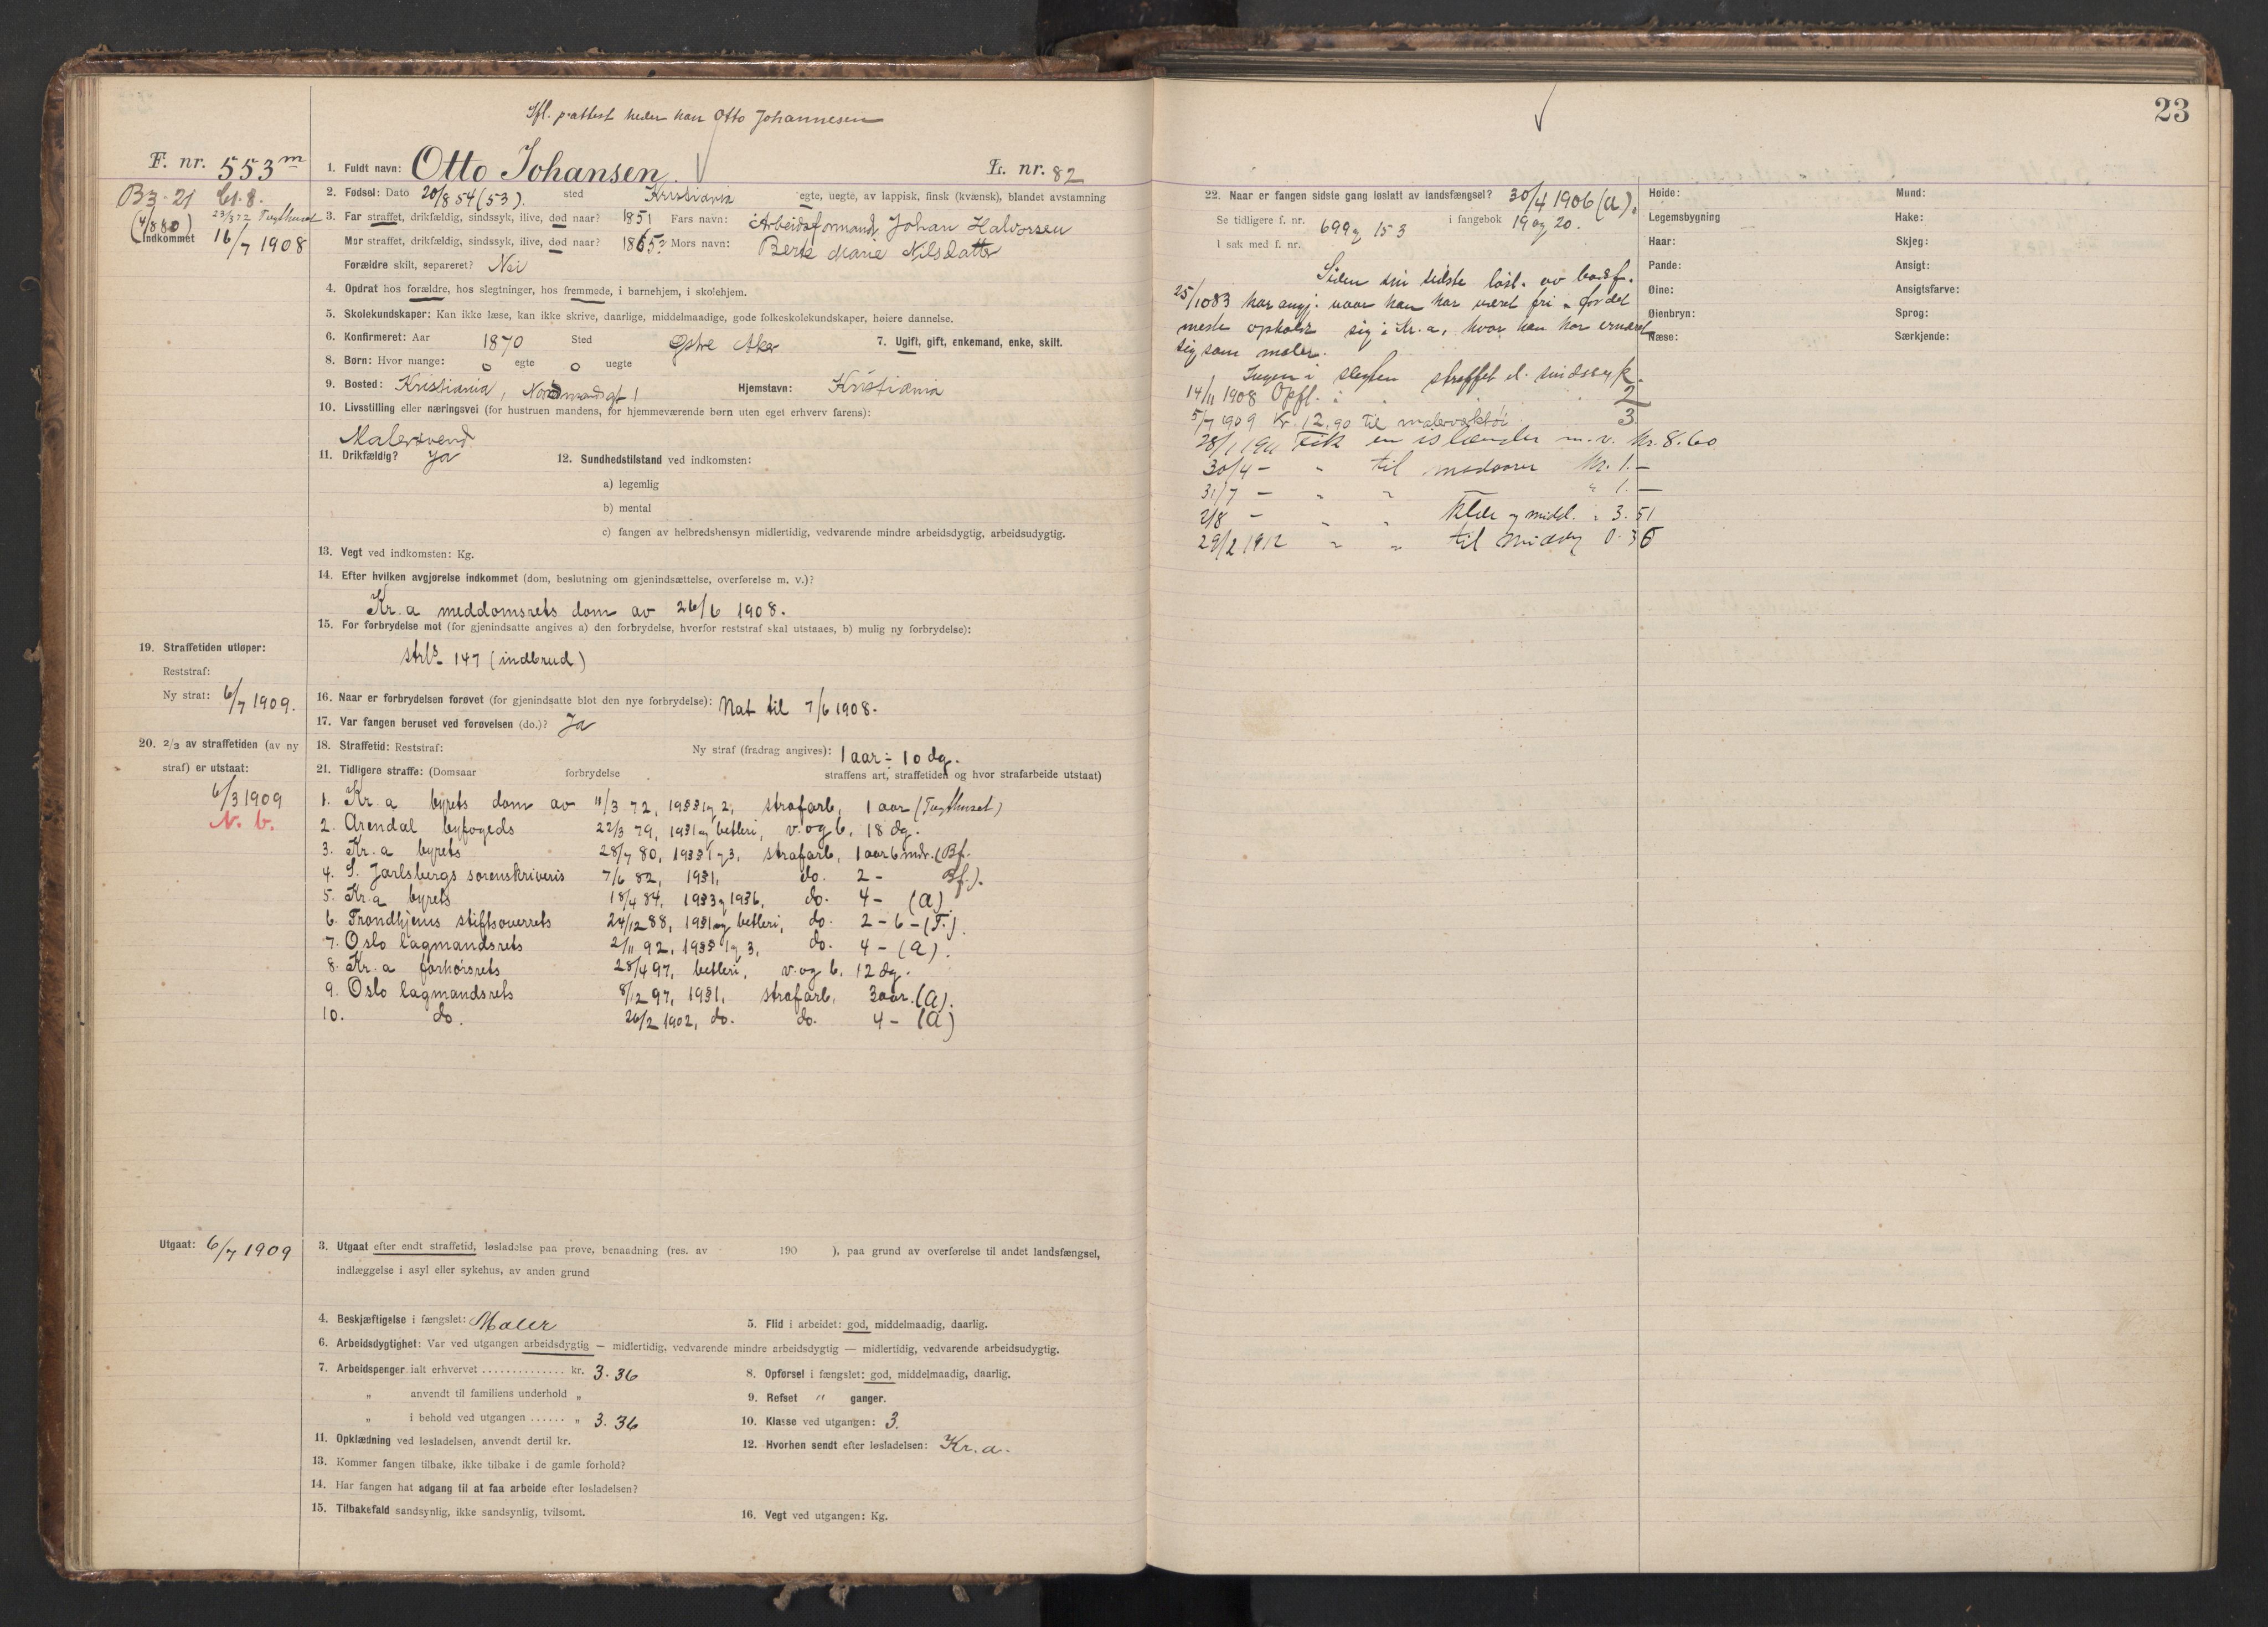 Ifl. p.attest heder han Otto Johannesen
F. nr. 553 m
1. Fuldt navn: Otto Johansen.
L. nr. 82
B3-21 Cl. 8.
2. Fødsel: Dato 20/8 54 (53). sted Kristiania egte, uegte, av lappisk, finsk (kvænsk), blandet avstamning
(4/8 80) 23/3 72 Tugthuset
3. Far straffet, drikfældig, sindssyk, ilive, død naar? 1851 Fars navn: Arbeidsformand Johan Halvorsen
Indkommet 16/7 1908
Mor straffet, drikfældig, sindssyk, ilive, død naar? 1865? Mors navn: Berte Marie Nilsdatter
Forældre skilt, separeret? Nei
4. Opdrat hos forældre, hos slegtninger, hos fremmede, i barnehjem, i skolehjem.
5. Skolekundskaper: Kan ikke læse, kan ikke skrive, daarlige, middelmaadige, gode folkeskolekundskaper, høiere dannelse.
6. Konfirmeret: Aar 1870 Sted Østre Aker 7. Ugift, gift, enkemand, enke, skilt.
8. Børn: Hvor mange: 0 egte 0 uegte
9. Bosted: Kristiania, Normandsgt 1 Hjemstavn: Kristiania
10. Livsstilling eller næringsvei (for hustruen mandens, for hjemmeværende børn uten eget erhverv farens):
Malersvend
11. Drikfældig? Ja 12. Sundhedstilstand ved indkomsten:
a) legemlig
b) mental
c) fangen av helbredshensyn midlertidig, vedvarende mindre arbeidsdygtig, arbeidsudygtig.
13. Vegt ved indkomsten: Kg.
14. Efter hvilken avgjørelse indkommet (dom, beslutning om gjenindsættelse, overførelse m. v.)?
Kr.a meddomsrets dom av 26/6 1908.
15. For forbrydelse mot (for gjenindsatte angives a) den forbrydelse, hvorfor reststraf skal utstaaes, b) mulig ny forbrydelse):
strls 147 (indbrud)
19. Straffetiden utløper:
Reststraf:
Ny straf: 6/7 1909.
16. Naar er forbrydelsen forøvet (for gjenindsatte blot den nye forbrydelse): Nat til 7/6 1908.
17. Var fangen beruset ved forøvelsen (do.)? Ja
20. 2/3 av straffetiden (av ny straf) er utstaat:
6/3 1909
N. b.
18. Straffetid: Reststraf: Ny straf (fradrag angives): 1 aar ÷ 10 dg.
21. Tidligere straffe: (Domsaar forbrydelse straffens art, straffetiden og hvor strafarbeide utstaat)
1. Kr.a byrets dom av 11/3 72, 1933 1 og 2, strafarb, 1 aar (Tugthuset)
2. Arendal byfogeds 22/3 79, 1931 og betleri, v. og b, 18 dg.
3. Kr.a byrets 28/7 80, 1933 1 og 3, strafarb, 1 aar 6 mdr. (Bf.
4. S. Jarlsbergs sorenskriveris 7/6 82, 1931, do. 2 - Bf.).
5. Kr.a byrets 18/4 84, 1933 og 1936, do. 4 - (A)
6. Trondhjems stiftsoverrets 24/12 88, 1931 og betleri, do. 2 - 6 - (T.).
7. Oslo lagmandsrets 2/11 92, 1933 1 og 3, do. 4 - (A).
8. Kr.a forhørsrets 28/4 97, betleri, v. og b, 12 dg.
9. Oslo lagmandsrets 8/12 97, 1931, strafarb, 3 aar. (A).
10. do. 26/2 1902, do. do. 4 - (A)
Utgaat: 6/7 1909
3. Utgaat efter endt straffetid, løsladelse paa prøve, benaadning (res. av 190 ), paa grund av overførelse til andet landsfængsel,
indlæggelse i asyl eller sykehus, av anden grund
4. Beskjæftigelse i fængslet: Maler 5. Flid i arbeidet: god, middelmaadig, daarlig.
6. Arbeidsdygtighet: Var ved utgangen arbeidsdygtig — midlertidig, vedvarende mindre arbeidsdygtig — midlertidig, vedvarende arbeidsudygtig.
7. Arbeidspenger ialt erhvervet .............. kr. 3.36 8. Opførsel i fængslet: god, middelmaadig, daarlig.
„ anvendt til familiens underhold „ 9. Refset " ganger.
„ i behold ved utgangen ...... „ 3.36 10. Klasse ved utgangen: 3.
11. Opklædning ved løsladelsen, anvendt dertil kr. 12. Hvorhen sendt efter løsladelsen: Kr.a.
13. Kommer fangen tilbake, ikke tilbake i de gamle forhold?
14. Har fangen hat adgang til at faa arbeide efter løsladelsen?
15. Tilbakefald sandsynlig, ikke sandsynlig, tvilsomt. 16. Vegt ved utgangen: Kg.
23
22. Naar er fangen sidste gang løslatt av landsfængsel? 30/4 1906 (A).
Se tidligere f. nr. 699 og 153 i fangebok 19 og 20.
I sak med f. nr.
Siden sin sidste løsl. av bodsf.
25/10 83 har angj. naar han har været fri - for det
meste opholdt sig i Kr.a, hvor han har ernæret
sig som maler.
Ingen i slegten straffet el. sindssyk.
14/11 1908 Opfl. i 2
5/7 1909 Kr. 12,90 til malerverktøi 3
28/1 1911 Fik en islænder m.v. kr. 8.60
30/4 - " til madvarer kr. 1.-
31/7 - " " " 1.-
2/8 - " " Klær og midd. " 3.51
29/2 1912 " " til middag 0.36
Høide:
Legemsbygning
Haar:
Pande:
Øine:
Øienbryn:
Næse:
Mund:
Hake:
Skjeg:
Ansigt:
Ansigtsfarve:
Sprog:
Særkjende: